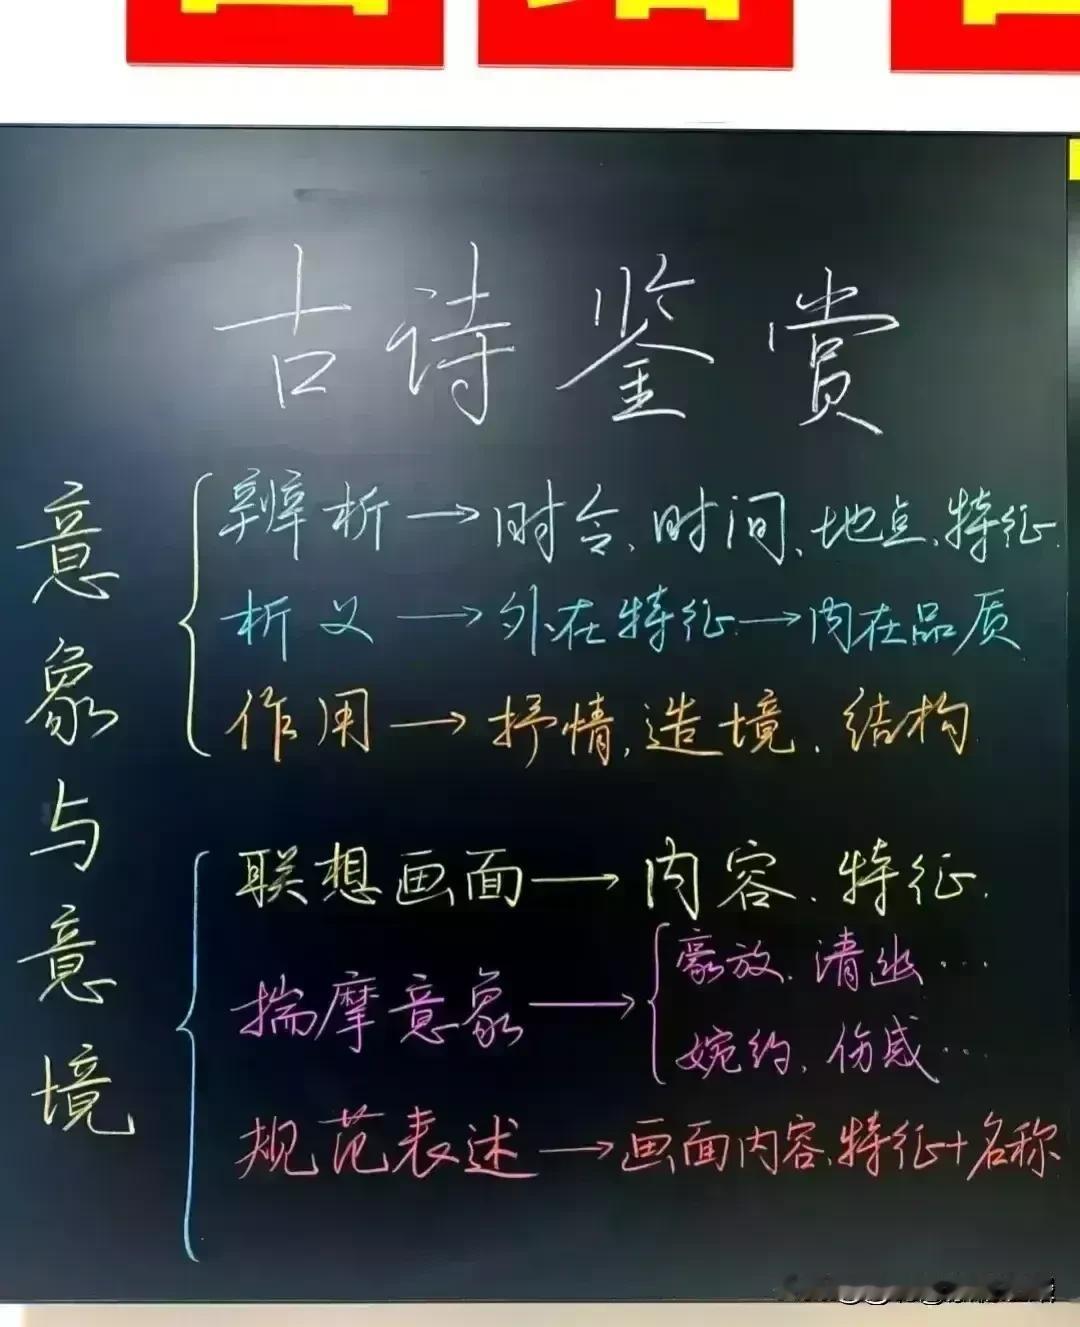 古诗鉴赏
意象与意境
辨析→时令、时间、地点、特征.
析义→外在特征→内在品质
作用→抒情,造境、结构
联想画面→内容、特征.
揣摩意象→
豪放、清幽…
婉约、伤感…
规范表述→画面内容、特征+名称